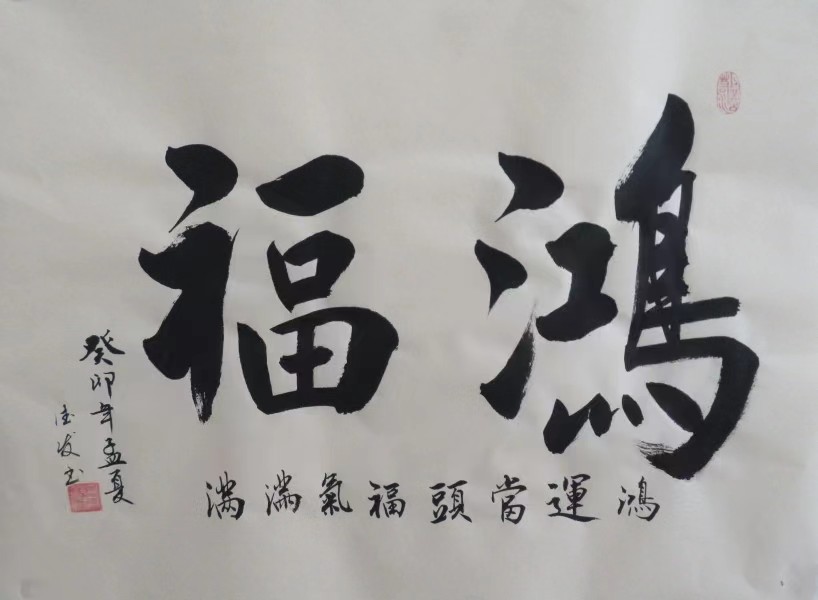 鴻福
鴻運當頭福氣滿滿
癸卯年孟夏